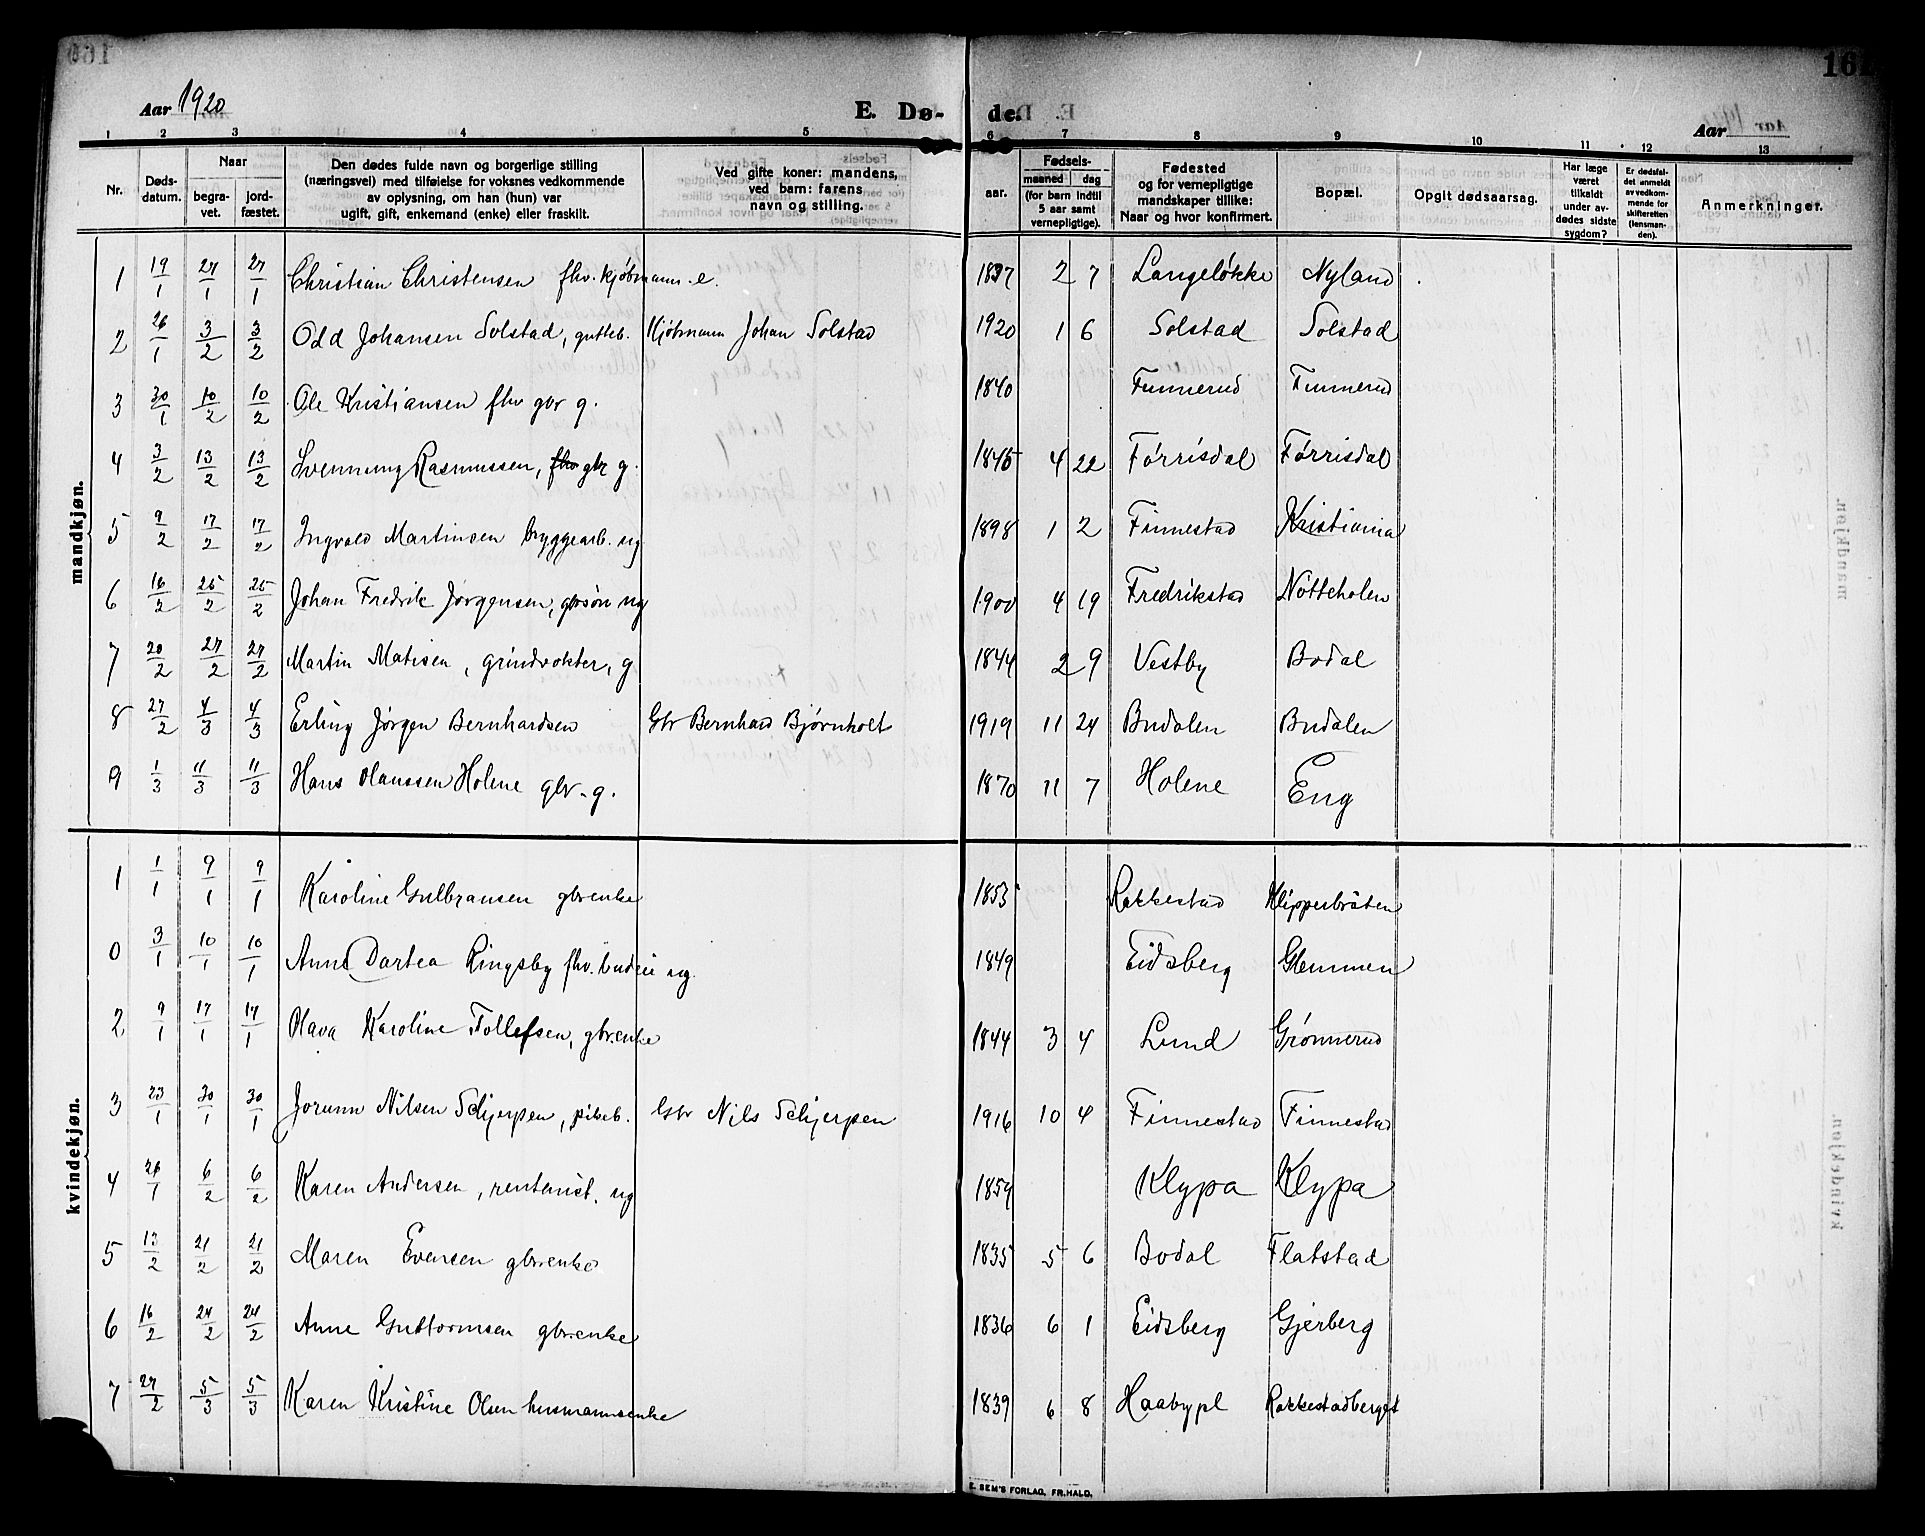 161
Aar 1920
E. Dø- de.
Aar
1 2 3 4 5 6 7 8 9 10 11 12 13
Nr. Døds-datum. Naar begra-vet. jord-fæstet. Den dødes fulde navn og borgerlige stilling (næringsvei) med tilføielse for voksnes vedkommende av oplysning, om han (hun) var ugift, gift, enkemand (enke) eller fraskilt. Ved gifte koner: mandens, ved barn: farens navn og stilling. Fødsels- aar. maaned dag (for barn indtil 5 aar samt vernepligtige). Fødested og for vernepligtige mandskaper tillike: Naar og hvor konfirmert. Bopæl. Opgit dødsaarsag. Har læge været tilkaldt under av-dødes sidste sygdom? Er dødsfal-det anmeldt av vedkom-mende for skifteretten (lensman-den). Anmerkninger.
mandkjøn.
1 19/1 27/1 27/1 Christian Christensen fhv. kjøbmann. e. 1837 2 7 Langeløkke Nyland
2 26/1 3/2 3/2 Odd Johansen Solstad, gutteb. Kjøbmann Johan Solstad 1920 1 6 Solstad Solstad
3 30/1 10/2 10/2 Ole Kristiansen fhv gbr g. 1840 Funnerud Funnerud
4 3/2 13/2 13/2 Svennung Rasmussen, fhv gbr g. 1845 4 22 Førrisdal Førrisdal
5 9/2 17/2 17/2 Ingvald Martinsen bryggearb. ug 1898 1 2 Finnestad Kristiania
6 16/2 25/2 25/2 Johan Fredrik Jørgensen, gbrsøn ug 1900 4 19 Fredrikstad Nøtteholen
7 20/2 27/2 27/2 Martin Matisen, grindvokter, g 1844 2 9 Vestby Bodal
8 27/2 4/3 4/3 Erling Jørgen Bernhardsen Gbr Bernhard Bjørnholt 1919 11 24 Budalen Budalen
9 1/3 11/3 11/3 Hans Olaussen Holene gbr. g. 1870 11 7 Holene Eng
kvindekjøn.
1 1/1 9/1 9/1 Karoline Gulbransen gbrenke 1853 Rakkestad Klipperbråten
0 3/1 10/1 10/1 Anne Dartea Ringsby fhv. budeie ug. 1849 Eidsberg Glemmen
2 9/1 17/1 17/1 Olava Karoline Tollefsen, gbrenke 1844 3 4 Lund Grønnerud
3 23/1 30/1 30/1 Jorunn Nilsen Schjerpen, pikeb. Gbr Nils Schjerpen 1916 10 4 Finnestad Finnestad
4 26/1 6/2 6/2 Karen Andersen, rentenist. ug 1859 Klypa Klypa
5 13/2 21/2 21/2 Maren Evensen gbrenke 1835 5 6 Bodal Flatstad
6 16/2 24/2 24/2 Anne Guttormsen gbrenke 1836 6 1 Eidsberg Gjerberg
7 27/2 5/3 5/3 Karen Kristine Olsen husmannsenke 1839 6 8 Haabypl Rakkestadberget
E. SEM'S FORLAG, FR.HALD.